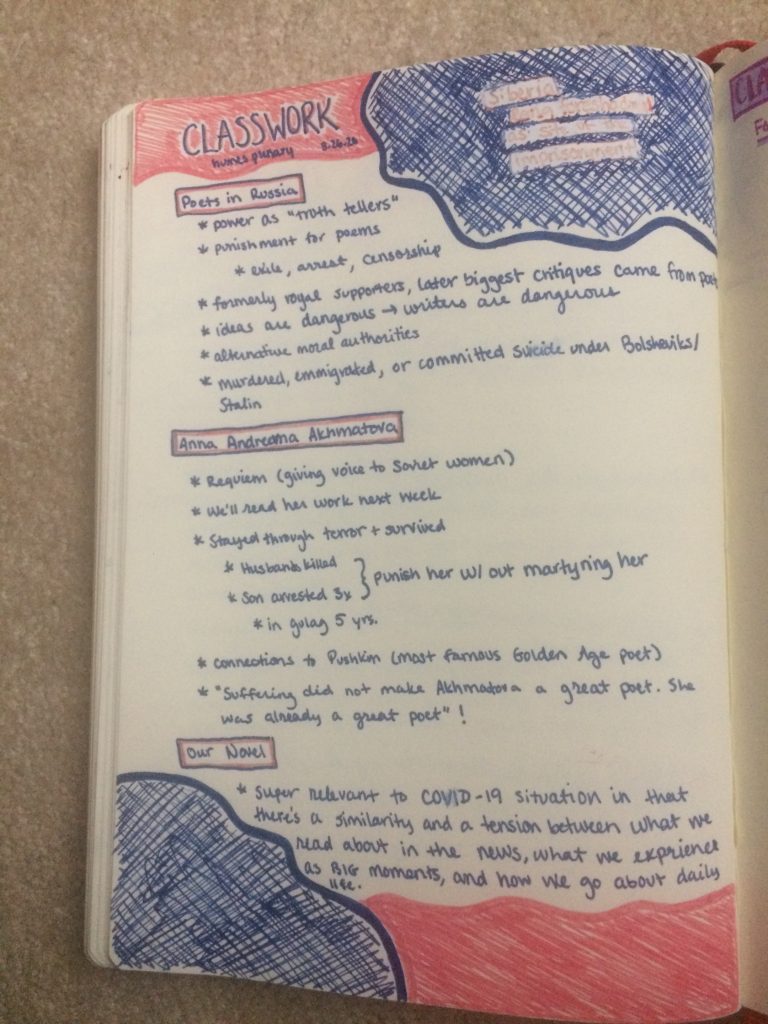 CLASSWORK
humes plenary 8.26.20
Siberia
being foreshadowed
as site of
imprisonment
Poets in Russia
* power as "truth tellers"
* punishment for poems
* exile, arrest, censorship
* formerly royal supporters, later biggest critiques came from poets
* ideas are dangerous → writers are dangerous
* alternative moral authorities
* murdered, emmigrated, or committed suicide under Bolsheviks/
Stalin
Anna Andreama Akhmatova
* Requiem (giving voice to Soviet women)
* We'll read her work next week
* Stayed through terror + survived
* Husbands killed
* Son arrested 3x } punish her w/out martyring her
* in gulag 5 yrs.
* connections to Pushkin (most famous Golden Age poet)
* "Suffering did not make Akhmatova a great poet. She
was already a great poet"!
Our Novel
* Super relevant to COVID-19 situation in that
there's a similarity and a tension between what we
read about in the news, what we exprience
as BIG moments, and how we go about daily
life.
CLA
Fo